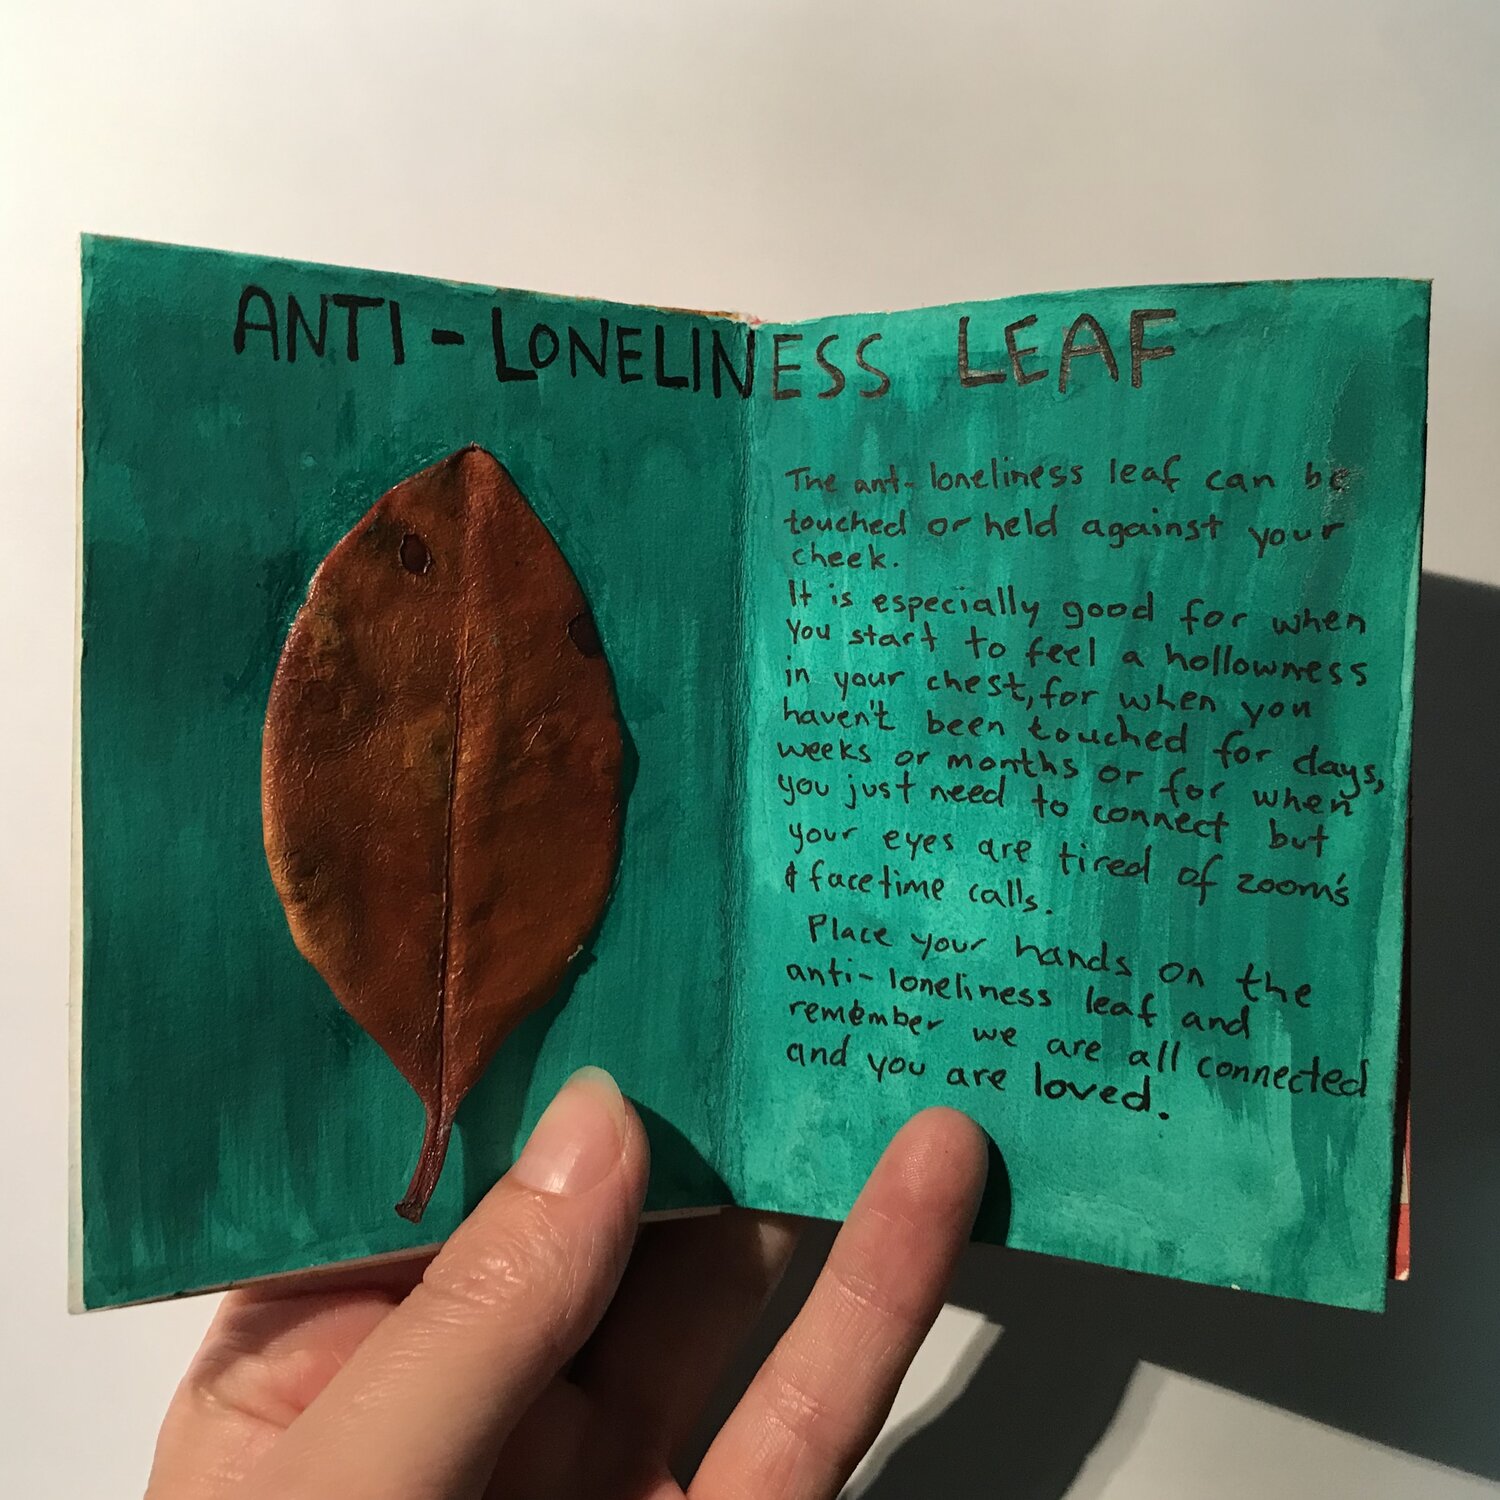 ANTI-LONELINESS LEAF
The anti-loneliness leaf can be
touched or held against your
cheek.
It is especially good for when
you start to feel a hollowness
in your chest, for when you
haven't been touched for days,
weeks or months or for when
you just need to connect but
your eyes are tired of zoom's
& facetime calls.
Place your hands on the
anti-loneliness leaf and
remember we are all connected
and you are loved.